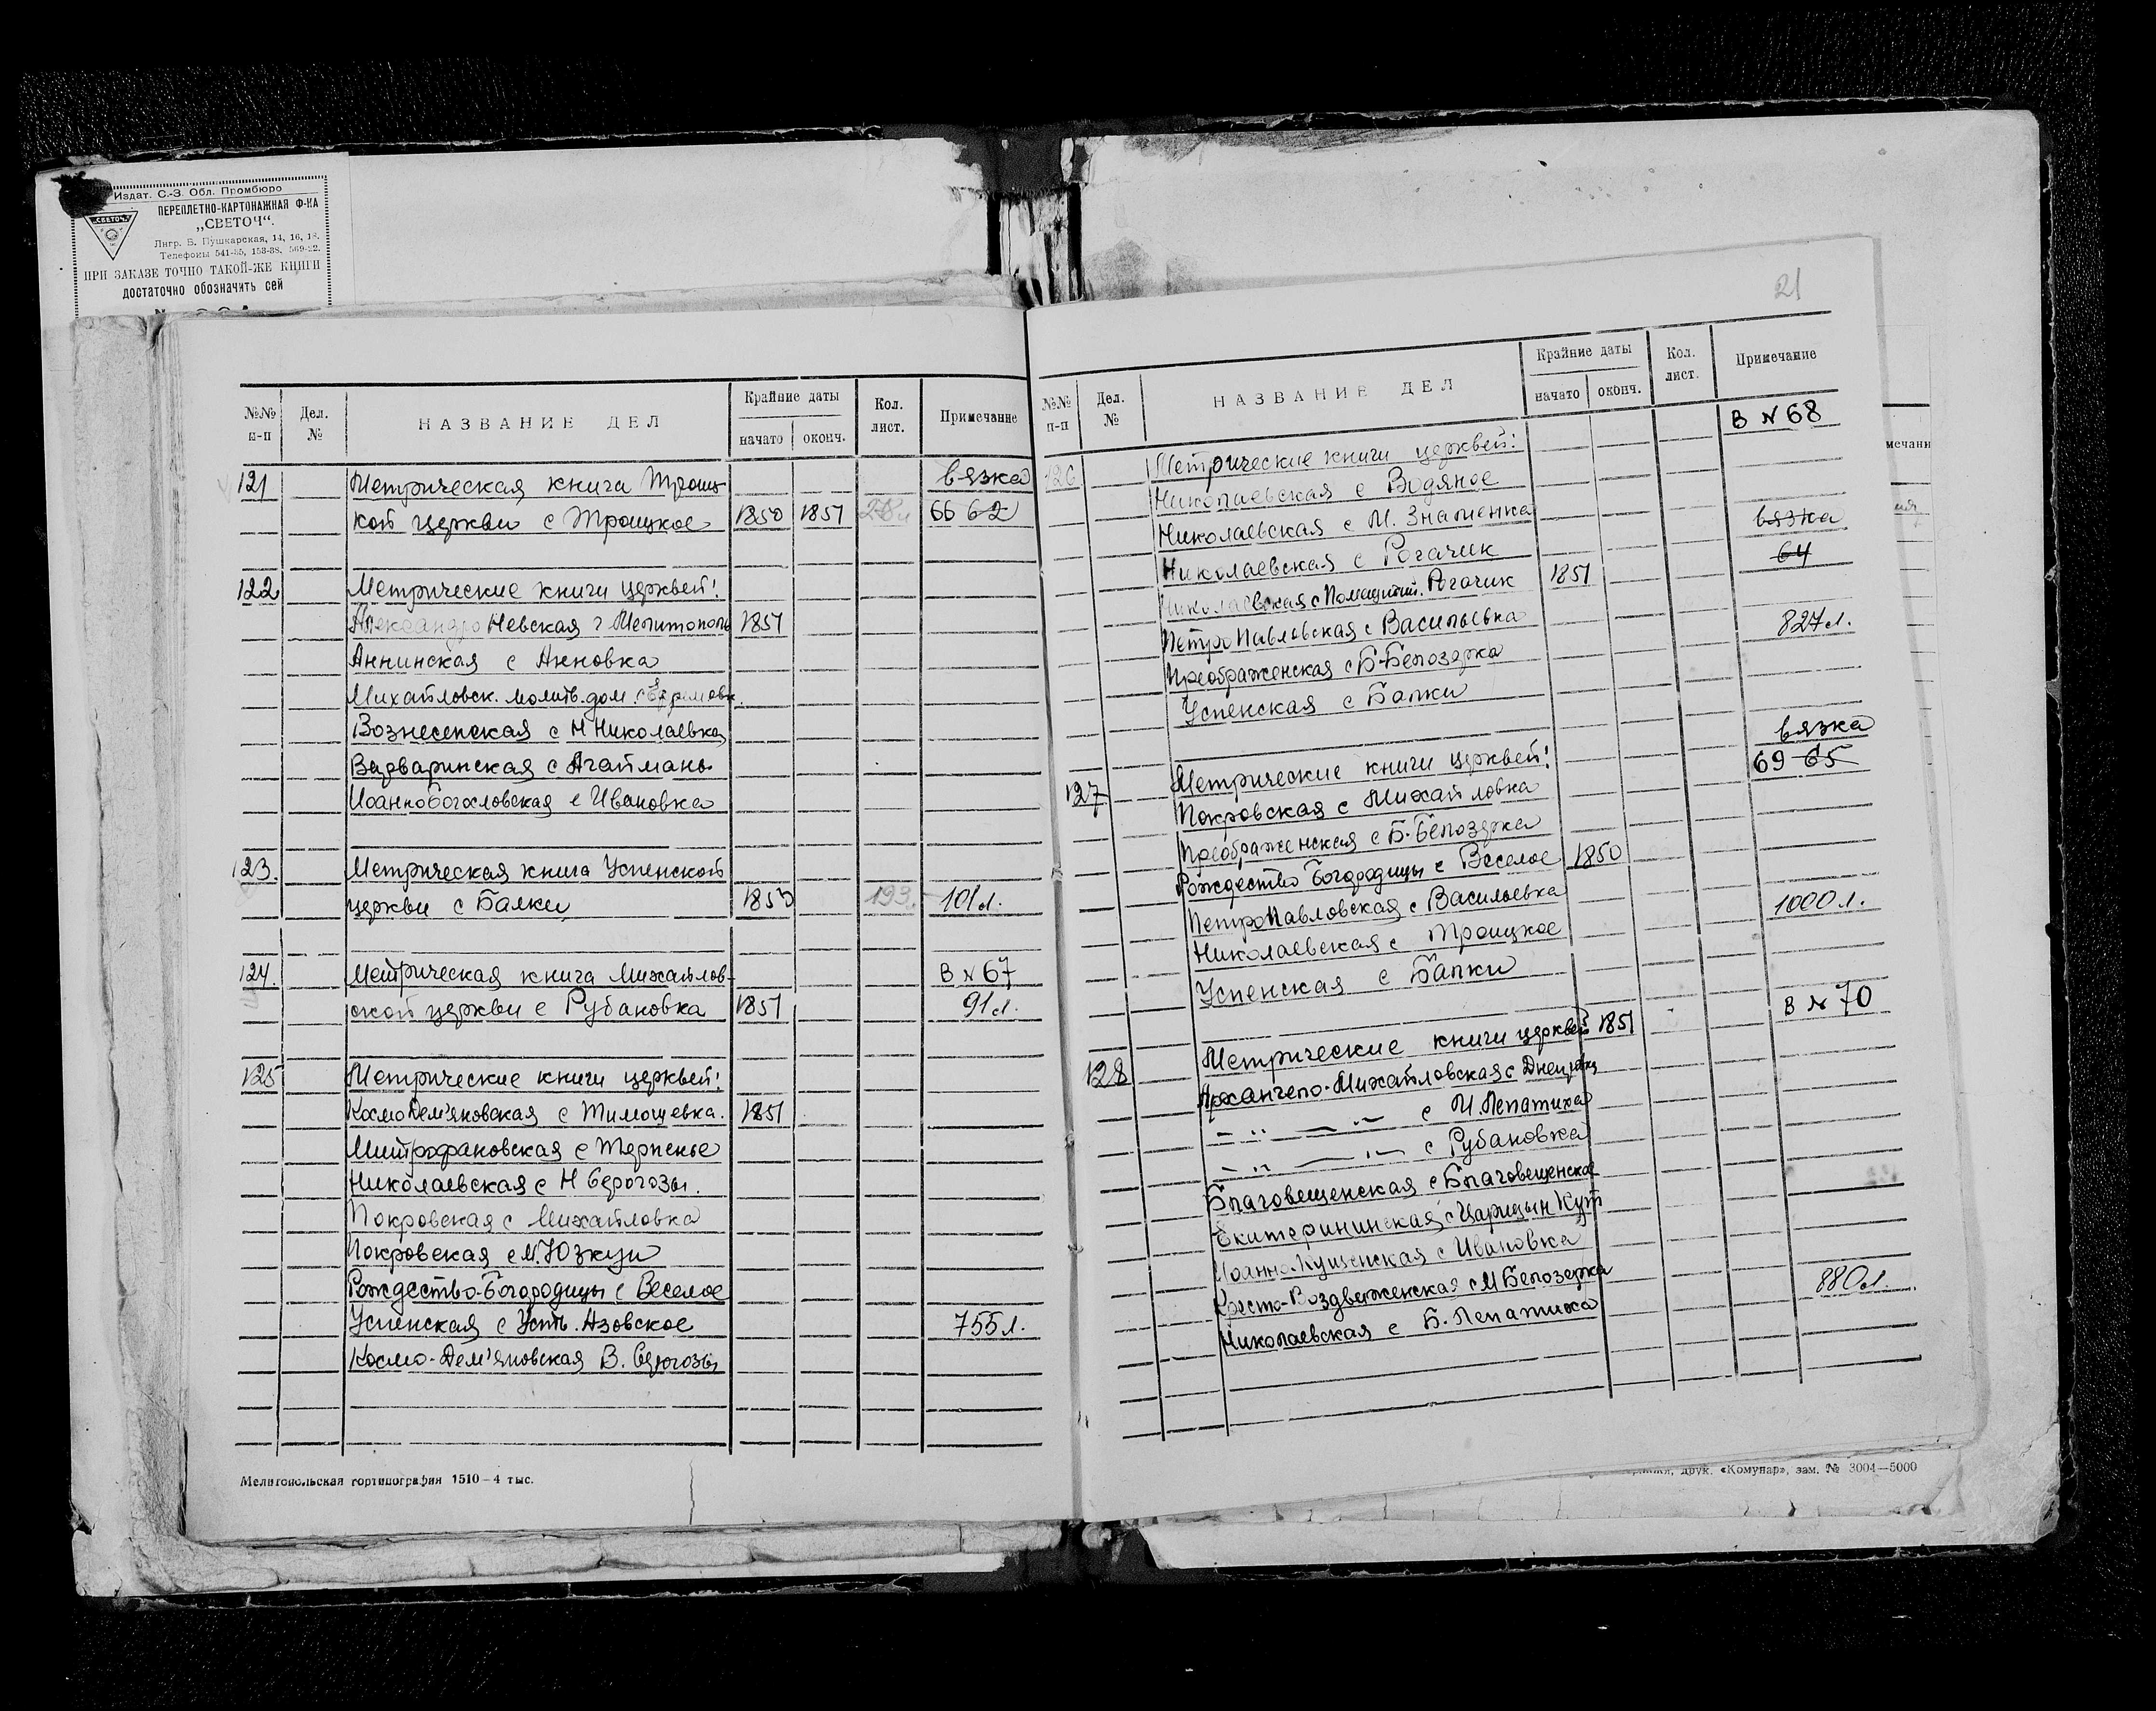 Издат. С.-З. Обл. Промбюро
ПЕРЕПЛЕТНО-КАРТОНАЖНАЯ Ф-КА
„СВЕТОЧ“.
СВЕТОЧ
Лнгр. Б. Пушкарская, 14, 16, 18.
Телефоны 541-35, 153-38, 569-22.
ПРИ ЗАКАЗЕ ТОЧНО ТАКОЙ-ЖЕ КНИГИ
достаточно обозначить сей
№№ п-п Дел. № НАЗВАНИЕ ДЕЛ Крайние даты начато оконч. Кол. лист. Примечание
121 Метрическая книга Троиц- вязка
кой церкви с Троицкое 1850 1851 66 62
122 Метрические книги церквей:
Александро Невская г Мелитополь 1851
Аннинская с Анновка
Михайловск. молитв. дом. с Ефремовк.
Вознесенская с Н Николаевка
Варваринская с Агайманы
Иоанно Богословская с Ивановка
123. Метрическая книга Успенской
церкви с Балки 1850 193. 101 л.
124. Метрическая книга Михайлов- В № 67
ской церкви с Рубановка 1851 91 л.
125 Метрические книги церквей:
Космо Дем'яновская с Тимошевка. 1851
Митрофановская с Терпенье
Николаевская с Н Серогозы.
Покровская с Михайловка
Покровская с М. Юзкуи
Рождество-Богородицы с Веселое
Успенская с Усть. Азовское 755 л.
Космо-Дем'яновская В. Серогозы
Мелитопольская гортипография 1510—4 тыс.
21
№№ п-п Дел. № НАЗВАНИЕ ДЕЛ Крайние даты начато оконч. Кол. лист. Примечание
В № 68
126 Метрические книги церквей:
Николаевская с Водяное
Николаевская с М. Знаменка вязка
Николаевская с Рогачик 64
Николаевская с Помещичий. Рогачик 1851
Петро Павловская с Васильевка 827 л.
Преображенская с Б-Белозерка
Успенская с Балки
вязка
127 Метрические книги церквей: 69 65
Покровская с Михайловка
Преображенская с Б. Белозерка
Рождество Богородицы с Веселое 1850
Петро Павловская с Васильевка
Николаевская с Троицкое 1000 л.
Успенская с Балки
128 Метрические книги церквей 1851 В № 70
Архангело-Михайловская с Днепровка
— " — " — с М. Лепатиха
— " — " — с Рубановка
Благовещенская с Благовещенское
Екатерининская с Царицын Кут
Иоанно-Кущенская с Ивановка
Кресто-Воздвиженская с М Белозерка
Николаевская с Б. Лепатиха 880 л.
друк. «Комунар», зам. № 3004—5000
мечани